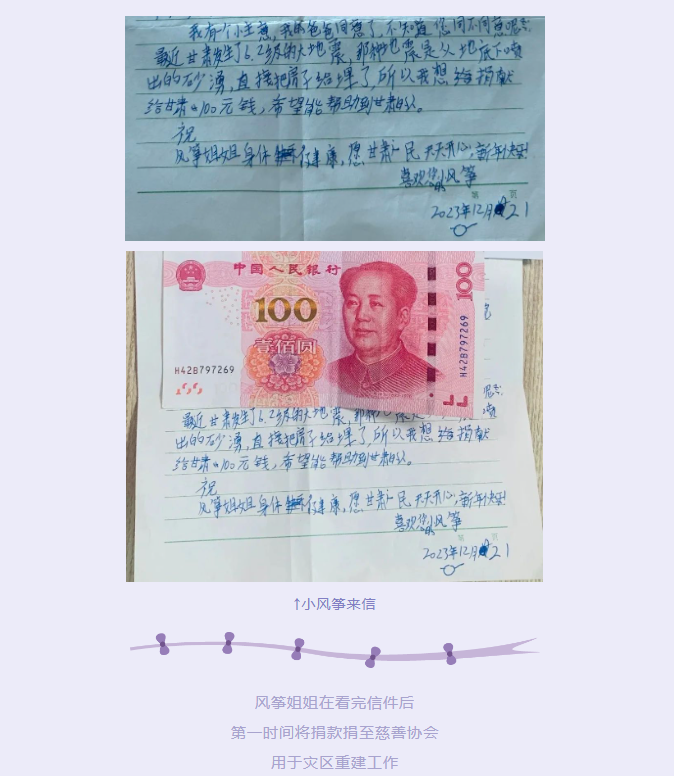 我有个小主意，我的爸爸同意了，不知道您同不同意呢？
最近甘肃发生了6.2级的大地震，那种地震是从地底下喷
出的砂涌，直接把房子给埋了，所以我想给捐献
给甘肃的100元钱，希望能帮助到甘肃的人。
祝
风筝姐姐身体健康，愿甘肃人民天天开心，新年快乐！
喜欢您的小风筝
第 页
2023年12月21
中国人民银行
100
100
壹佰圆
H42B797269
H42B797269
最近甘肃发生了6.2级的大地震，那种
出的砂涌，直接把房子给埋了，所以我想给捐献
给甘肃的100元钱，希望能帮助到甘肃的人。
祝
风筝姐姐身体健康，愿甘肃人民天天开心，新年快乐！
喜欢您的小风筝
第 页
2023年12月21
↑小风筝来信
风筝姐姐在看完信件后
第一时间将捐款捐至慈善协会
用于灾区重建工作